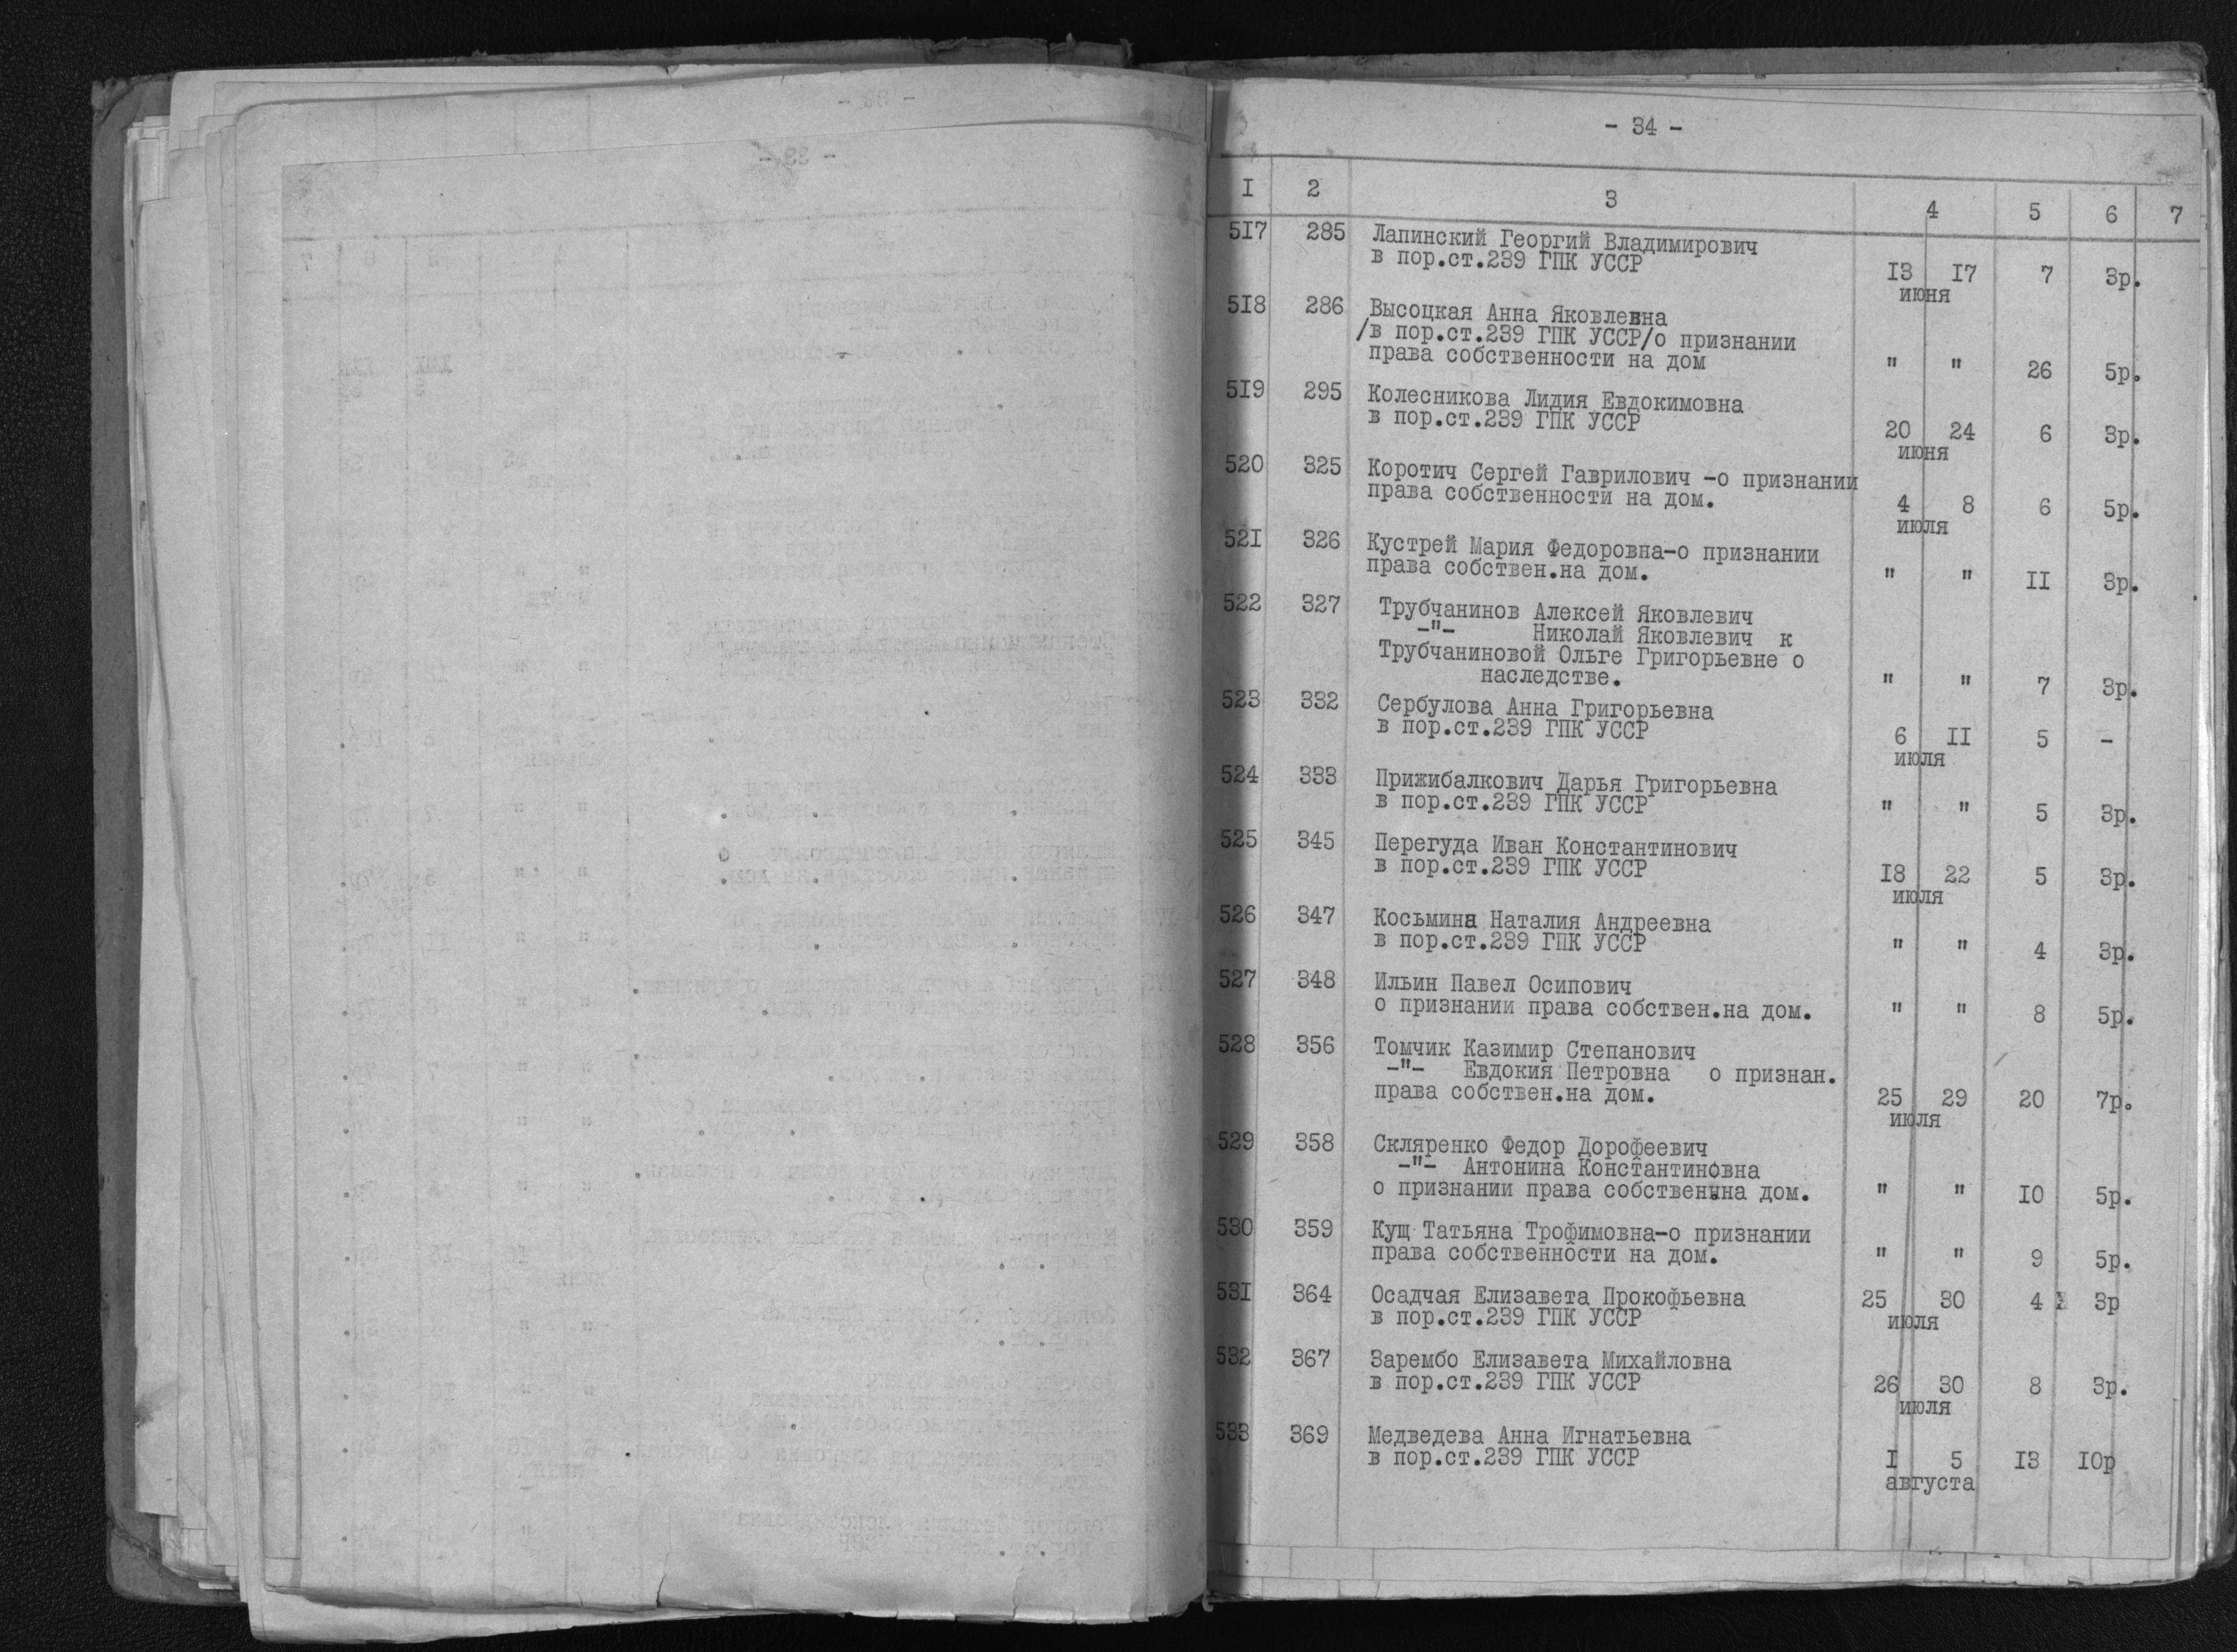 - 34 -
I 2 3 4 5 6 7
517 285 Лапинский Георгий Владимирович
в пор.ст.239 ГПК УССР I3 I7 7 3р.
июня
518 286 Высоцкая Анна Яковлевна
/в пор.ст.239 ГПК УССР/о признании
права собственности на дом " " 26 5р.
519 295 Колесникова Лидия Евдокимовна
в пор.ст.239 ГПК УССР 20 24 6 3р.
июня
520 325 Коротич Сергей Гаврилович -о признании
права собственности на дом. 4 8 6 5р.
июля
52I 326 Кустрей Мария Федоровна-о признании
права собствен.на дом. " " II 3р.
522 327 Трубчанинов Алексей Яковлевич
-"- Николай Яковлевич к
Трубчаниновой Ольге Григорьевне о
наследстве. " " 7 3р.
523 332 Сербулова Анна Григорьевна
в пор.ст.239 ГПК УССР 6 II 5 -
июля
524 333 Прижибалкович Дарья Григорьевна
в пор.ст.239 ГПК УССР " " 5 3р.
525 345 Перегуда Иван Константинович
в пор.ст.239 ГПК УССР I8 22 5 3р.
июля
526 347 Косьмина Наталия Андреевна
в пор.ст.239 ГПК УССР " " 4 3р.
527 348 Ильин Павел Осипович
о признании права собствен.на дом. " " 8 5р.
528 356 Томчик Казимир Степанович
-"- Евдокия Петровна о признан.
права собствен.на дом. 25 29 20 7р.
июля
529 358 Скляренко Федор Дорофеевич
-"- Антонина Константиновна
о признании права собствен.на дом. " " I0 5р.
530 359 Кущ Татьяна Трофимовна-о признании
права собственности на дом. " " 9 5р.
53I 364 Осадчая Елизавета Прокофьевна 25 30 4 3р
в пор.ст.239 ГПК УССР июля
532 367 Зарембо Елизавета Михайловна
в пор.ст.239 ГПК УССР 26 30 8 3р.
июля
533 369 Медведева Анна Игнатьевна
в пор.ст.239 ГПК УССР I 5 I3 I0р
августа